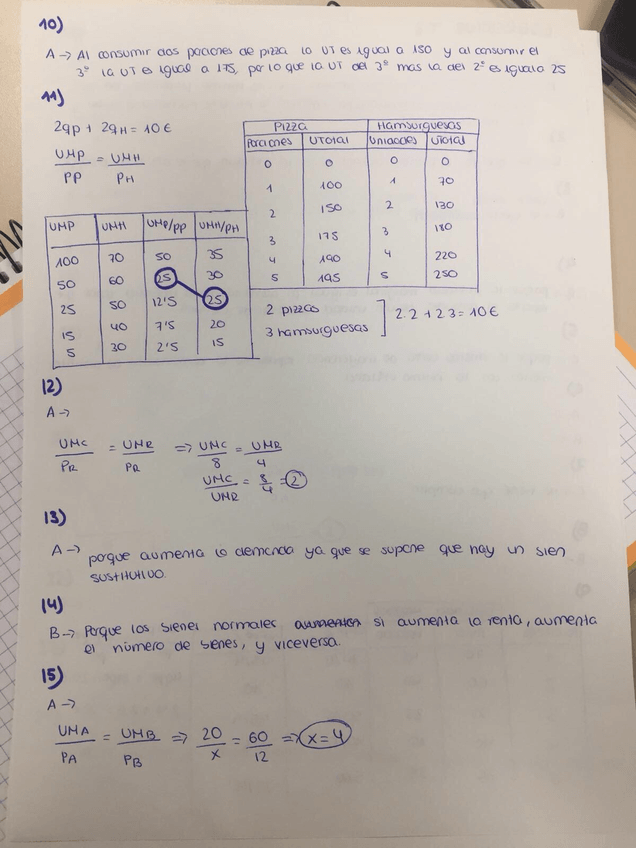 10)
A → Al consumir dos paciones de pizza la UT es igual a 150 y al consumir el
3º la UT es igual a 175, por lo que la UT del 3º mas la del 2º es igual a 25
11)
2qp + 2qH = 10€
UMP/PP = UMH/PH
Pizza Hamsurguesas
Porciones UTotal Unidades UTotal
0 0 0 0
1 100 1 70
2 150 2 130
3 175 3 180
4 190 4 220
5 195 5 250
UMP UMH UMP/PP UMH/PH
100 70 50 35
50 60 25 30
25 50 12'5 25
15 40 7'5 20
5 30 2'5 15
2 pizzas
3 hamsurguesas
2·2 + 2·3 = 10€
12)
A →
UMC/PR = UMR/PR => UMC/8 = UMR/4
UMC/UMR = 8/4 = 2
13)
A → porque aumenta la demanda ya que se supone que hay un sien
sustitutivo.
14)
B → Porque los sienes normales aumentan si aumenta la renta, aumenta
el número de sienes, y viceversa.
15)
A →
UMA/PA = UMB/PB => 20/x = 60/12 => x = 4